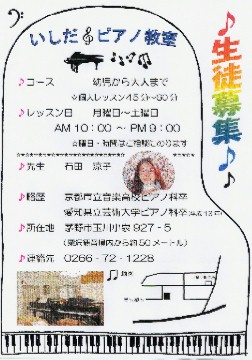 いしだ ピアノ教室
生徒募集
♪コース 幼児から大人まで
☆個人レッスン45分～60分
♪レッスン日 月曜日～土曜日
AM 10:00 ～ PM 9:00
☆曜日・時間はご相談にのります
♪先生 石田 涼子
♪略歴 京都市立音楽高校ピアノ科卒
愛知県立芸術大学ピアノ科卒
♪所在地 茅野市玉川小泉 927-5
から約50メートル)
♪連絡先 0266-72-1228
♪地図